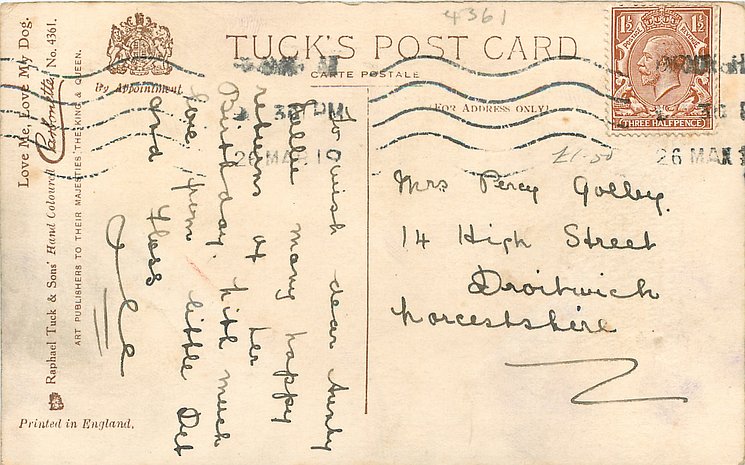 4361
TUCK'S POST CARD
CARTE POSTALE
By Appointment
FOR ADDRESS ONLY.
1½ 1½
POSTAGE REVENUE
THREE HALFPENCE
PM
26 MAR 1
26 MAR 1
£1.50
Love Me, Love My Dog.
Raphael Tuck & Sons' Hand Coloured No. 4361.
ART PUBLISHERS TO THEIR MAJESTIES THE KING & QUEEN.
Printed in England.
To wish dear Aunty
many happy
returns of her
Birthday. With much
love from little Deb
and Floss
Mrs Percy Golley.
14 High Street
Droitwich
Worcestshire